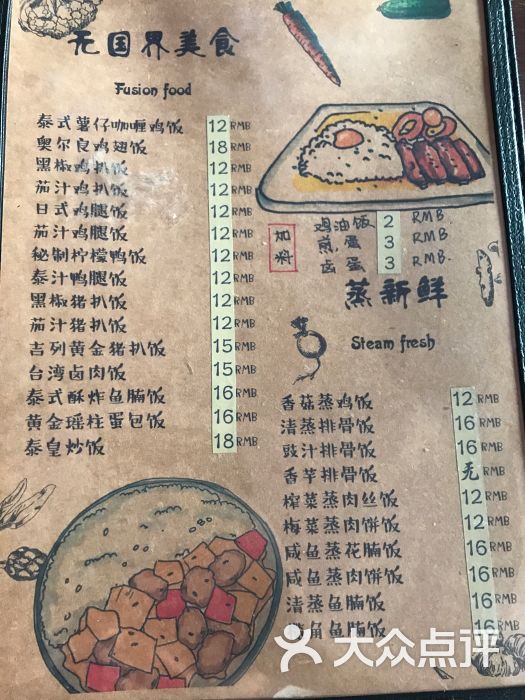 无国界美食
Fusion food
泰式薯仔咖喱鸡饭 12RMB
奥尔良鸡翅饭 18RMB
黑椒鸡扒饭 12RMB
茄汁鸡扒饭 12RMB
日式鸡腿饭 12RMB
茄汁鸡腿饭 12RMB
秘制柠檬鸭饭 12RMB
泰汁鸭腿饭 12RMB
黑椒猪扒饭 12RMB
茄汁猪扒饭 12RMB
吉列黄金猪扒饭 15RMB
台湾卤肉饭 15RMB
泰式酥炸鱼腩饭 16RMB
黄金瑶柱蛋包饭 16RMB
泰皇炒饭 18RMB
加料
鸡油饭 2 RMB.
煎蛋 3 RMB.
卤蛋 3 RMB.
蒸新鲜
Steam fresh
香菇蒸鸡饭 12RMB
清蒸排骨饭 16RMB
豉汁排骨饭 16RMB
香芋排骨饭 无RMB
榨菜蒸肉丝饭 12RMB
梅菜蒸肉饼饭 12RMB
咸鱼蒸花腩饭 16RMB
咸鱼蒸肉饼饭 16RMB
清蒸鱼腩饭 16RMB
角鱼腩饭 16RMB
大众点评